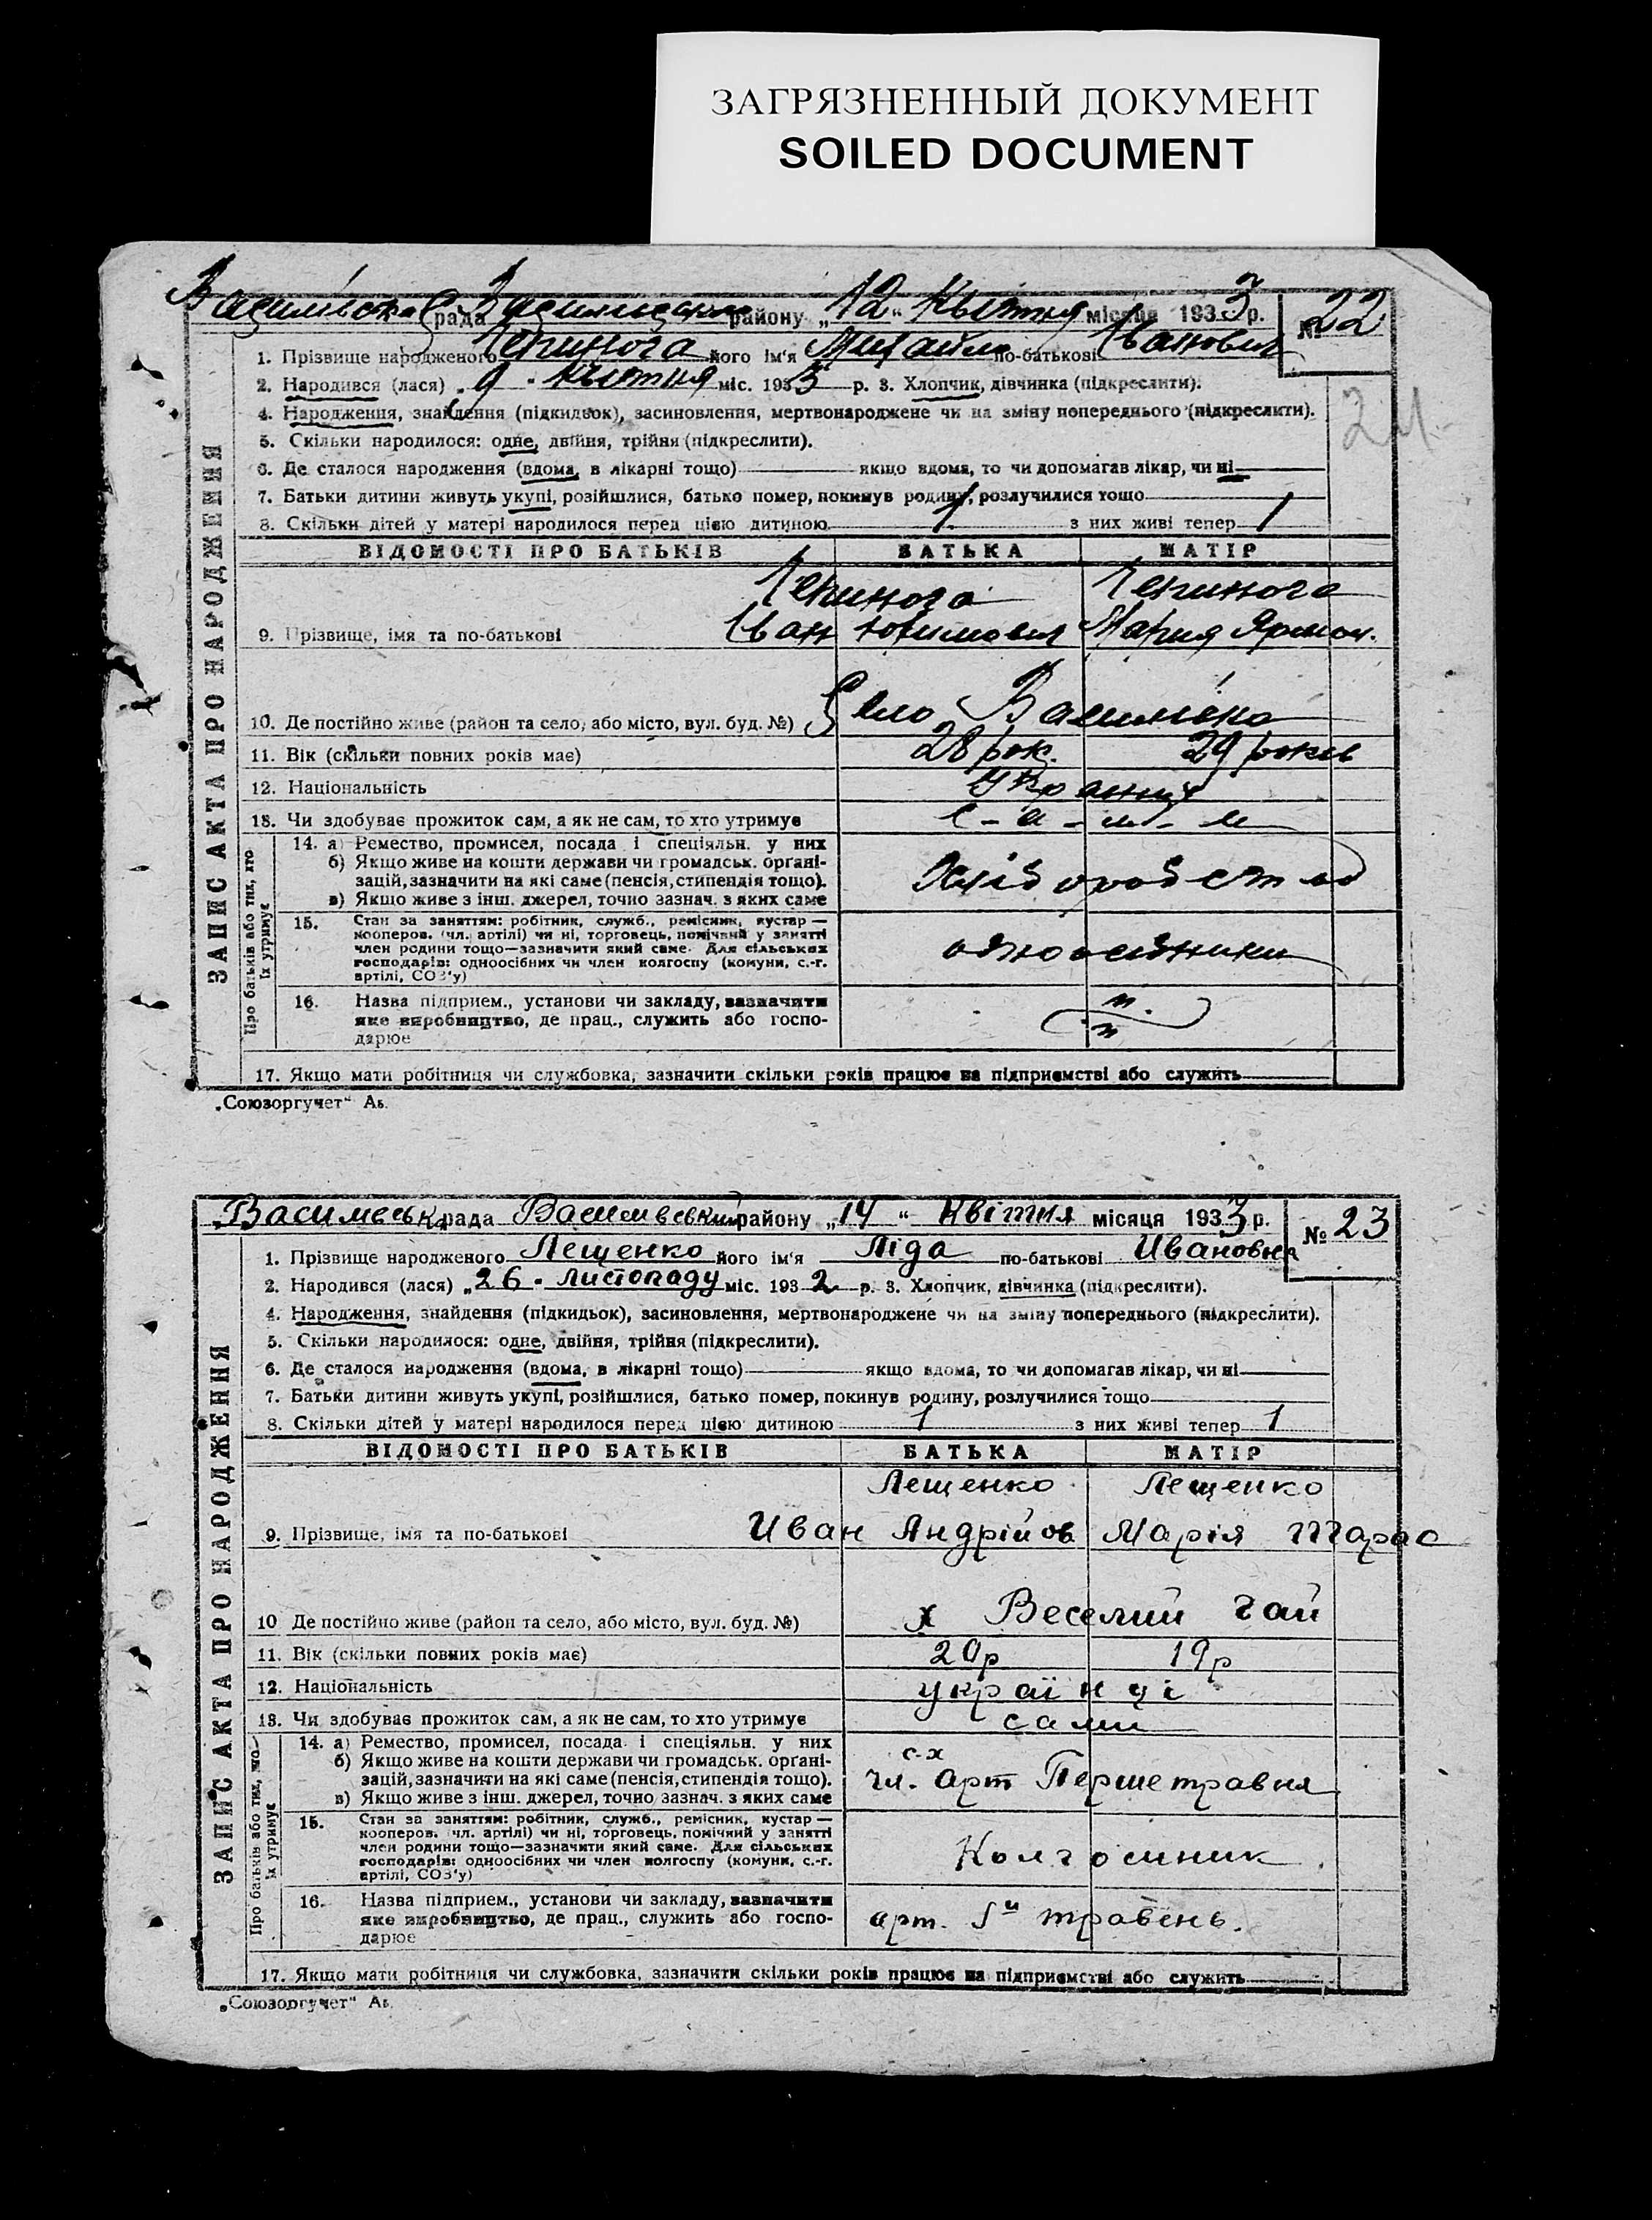 ЗАГРЯЗНЕННЫЙ ДОКУМЕНТ
SOILED DOCUMENT
рада району „12“ Квітня місяця 1933 р. № 22
1. Прізвище народженого його ім'я Михайло по-батькові Іванович
2. Народився (лася) „9 квітня міс. 1933 р. 3. Хлопчик, дівчинка (підкреслити).
4. Народження, знайдення (підкидьок), засиновлення, мертвонароджене чи на зміну попереднього (підкреслити).
5. Скільки народилося: одне, двійня, трійня (підкреслити).
6. Де сталося народження (вдома, в лікарні тощо) якщо вдома, то чи допомагав лікар, чи ні
7. Батьки дитини живуть укупі, розійшлися, батько помер, покинув родину, розлучилися тощо
8. Скільки дітей у матері народилося перед цією дитиною 1 з них живі тепер 1
ЗАПИС АКТА ПРО НАРОДЖЕННЯ
ВІДОМОСТІ ПРО БАТЬКІВ БАТЬКА МАТІР
9. Прізвище, імя та по-батькові Іван Мария
10. Де постійно живе (район та село, або місто, вул. буд. №) Село
11. Вік (скільки повних років має) 28 рок. 29 років
12. Національність
13. Чи здобуває прожиток сам, а як не сам, то хто утримує с-а-м-и
Про батьків або тих, хто їх утримує
14. а) Ремество, промисел, посада і спеціяльн. у них
б) Якщо живе на кошти держави чи громадськ. органі-
зацій, зазначити на які саме (пенсія, стипендія тощо).
в) Якщо живе з інш. джерел, точно зазнач. з яких саме
Хліборобство
15. Стан за заняттям: робітник, служб., ремісник, кустар —
кооперов. (чл. артілі) чи ні, торговець, помічний у занятті
член родини тощо—зазначити який саме. Для сільських
господарів: одноосібних чи член колгоспу (комуни, с.-г.
артілі, СОЗ'у)
одноосібники
16. Назва підприєм., установи чи закладу, зазначити
яке виробництво, де прац., служить або госпо-
дарює
17. Якщо мати робітниця чи службовка, зазначити скільки років працює на підприємстві або служить
„Союзоргучет“
рада району „14“ Квітня місяця 1933 р. № 23
1. Прізвище народженого Лещенко його ім'я Ліда по-батькові Ивановна
2. Народився (лася) „26. листопаду міс. 1932 р. 3. Хлопчик, дівчинка (підкреслити).
4. Народження, знайдення (підкидьок), засиновлення, мертвонароджене чи на зміну попереднього (підкреслити).
5. Скільки народилося: одне, двійня, трійня (підкреслити).
6. Де сталося народження (вдома, в лікарні тощо) якщо вдома, то чи допомагав лікар, чи ні
7. Батьки дитини живуть укупі, розійшлися, батько помер, покинув родину, розлучилися тощо
8. Скільки дітей у матері народилося перед цією дитиною 1 з них живі тепер 1
ЗАПИС АКТА ПРО НАРОДЖЕННЯ
ВІДОМОСТІ ПРО БАТЬКІВ БАТЬКА МАТІР
Лещенко Лещенко
9. Прізвище, імя та по-батькові Иван Андрійов Марія Тарас
10 Де постійно живе (район та село, або місто, вул. буд. №) х Веселий гай
11. Вік (скільки повних років має) 20р 19р
12. Національність українці
13. Чи здобуває прожиток сам, а як не сам, то хто утримує сами
Про батьків або тих, хто їх утримує
14. а) Ремество, промисел, посада і спеціяльн. у них
б) Якщо живе на кошти держави чи громадськ. органі-
зацій, зазначити на які саме (пенсія, стипендія тощо).
в) Якщо живе з інш. джерел, точно зазнач. з яких саме
с-х
чл. арт Першетравня
15. Стан за заняттям: робітник, служб., ремісник, кустар —
кооперов. (чл. артілі) чи ні, торговець, помічний у занятті
член родини тощо—зазначити який саме. Для сільських
господарів: одноосібних чи член колгоспу (комуни, с.-г.
артілі, СОЗ'у)
16. Назва підприєм., установи чи закладу, зазначити
яке виробництво, де прац., служить або госпо-
дарює
арт. травень.
17. Якщо мати робітниця чи службовка, зазначити скільки років працює на підприємстві або служить
„Союзоргучет“